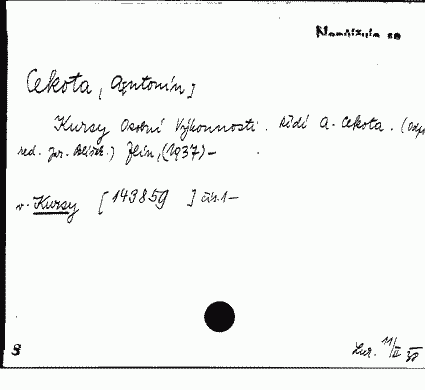 Neopůjčuje se
Cekota, A[ntonín]
Kursy Osobní Výkonnosti. Řídí A. Cekota. (Odp.
red. Jar. ) Zlín, (1937)–
v. Kursy [149859] čís. 1–
8
Lur. 11/II 38